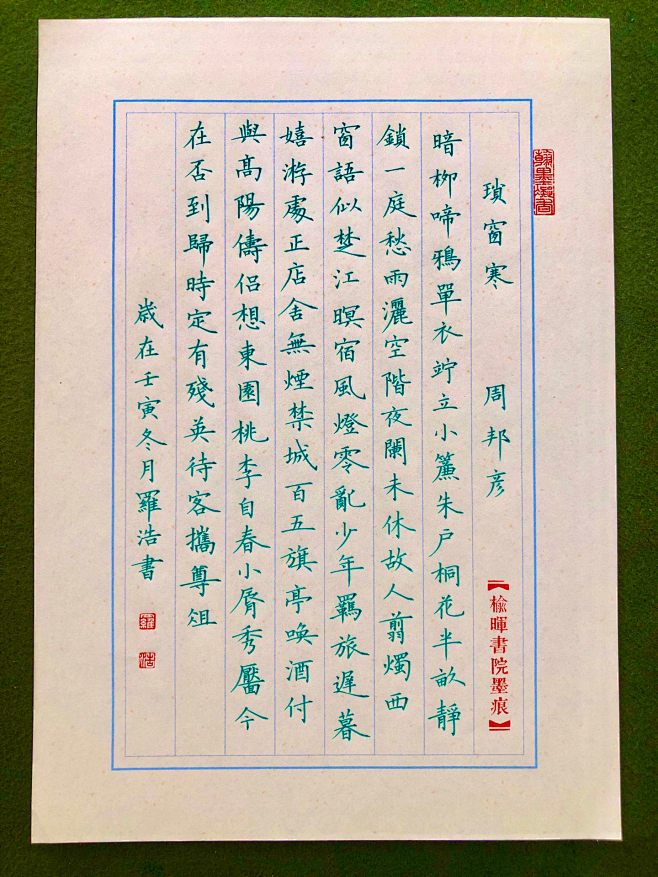 瑣窗寒 周邦彦
暗柳啼鴉單衣竚立小簾朱戶桐花半畝靜
鎖一庭愁雨灑空階夜闌未休故人翦燭西
窗語似楚江暝宿風燈零亂少年羈旅遲暮
嬉游處正店舍無煙禁城百五旗亭喚酒付
與高陽儔侶想東園桃李自春小脣秀靨今
在否到歸時定有殘英待客攜尊俎
歲在壬寅冬月羅浩書
羅
浩
【榆暉書院墨痕】